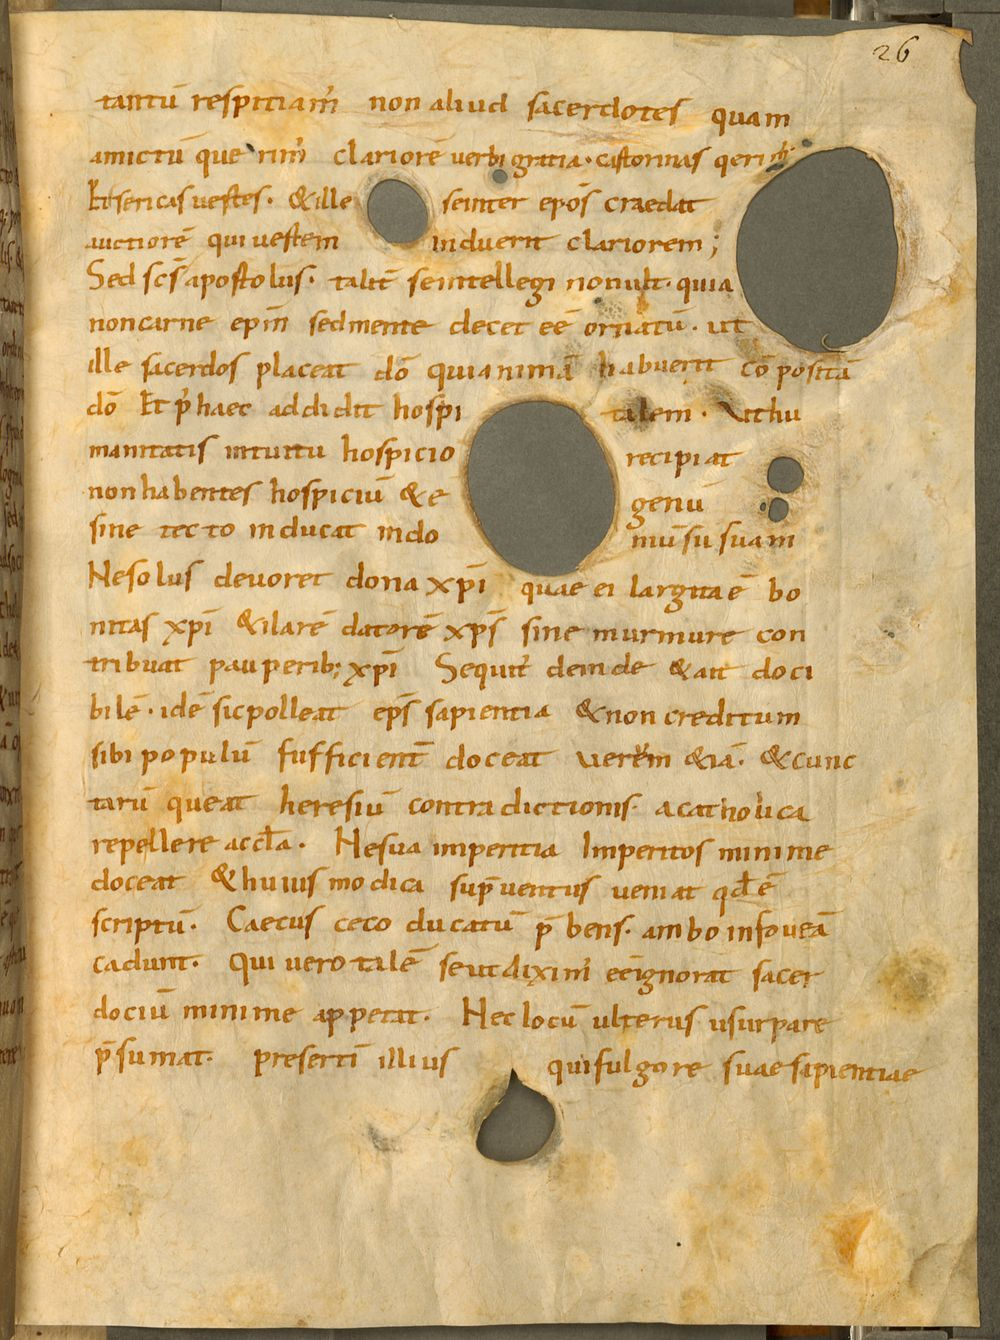 26
tantū respitiam̄ non aliud sacerdotes quam
amictū querim̄ clariorē verbi gratia· castorinas qerim̄
Et sericas vestes· & ille se inter ep̄os craedat
auctiorē qui vestem induerit clariorem;
Sed sc̄s apostolus· talit̄ se intellegi non ult· quia
non carne epm̄ sed mente decet eē ornatū· ut
ille sacerdos placeat dō qui animā habuerit cō positā
dō Et p̄ haec addidit hospi talem· Ut hu
manitatis intuitu hospicio recipiat
non habentes hospiciū & e genū
sine tecto inducat in do mū su suam
Ne solus devoret dona xp̄i quae ei largita ē bo
nitas xp̄i & ilarē datorē xp̄s sine murmure con
tribuat pauperib; xp̄i Sequit̄ deinde & ait doci
bilē· idē sic polleat ep̄s sapientia & non creditum
sibi populū sufficient̄ doceat verem & iā· & cunc
tarū queat heresiū contradictionis· a catholica
repellere accl̄a· Ne sua imperitia Imperitos minime
doceat & huius modica sup̄ventus veniat qd̄ ē
scriptū· Caecus ceco ducatū p̄bens· ambo in foveā
cadunt· Qui vero talē se ut diximꝰ eē ignorat sacer
dociū minime appetat· Nec locū ulterus usurpare
p̄sumat· presertī illius qui fulgore suae sapientiae